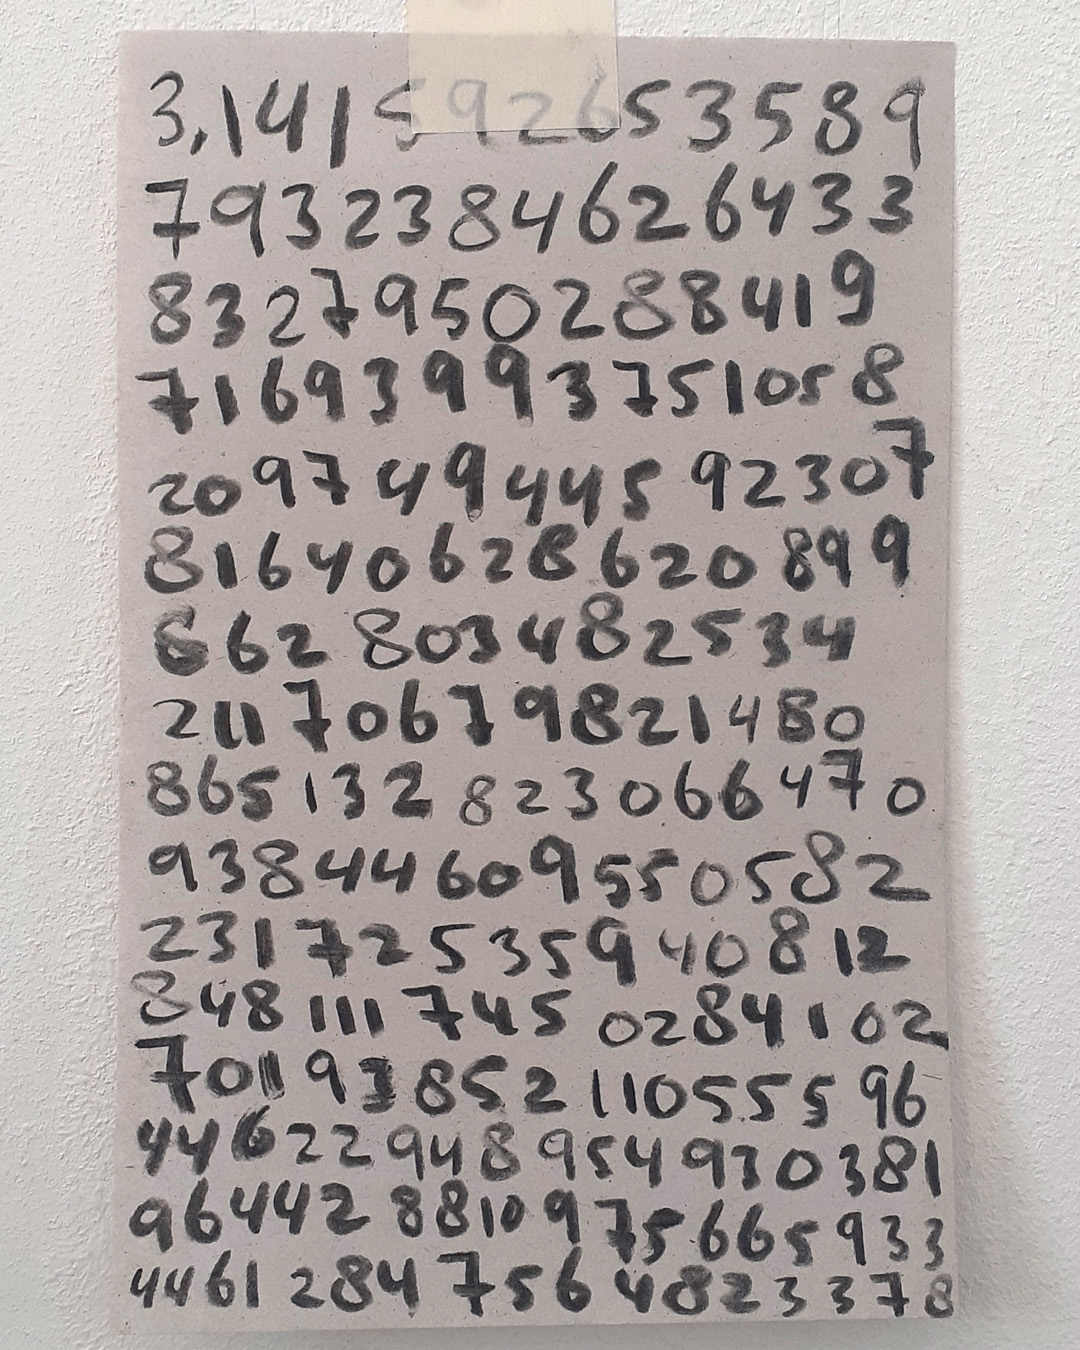 3,141592653589
7932384626433
8327950288419
71693993751058
20974944592307
81640628620899
862803482534
21170679821480
865132823066470
93844609550582
23172535940812
8481117450284102
7019385211055596
44622948954930381
964428810975665933
44612847564823378